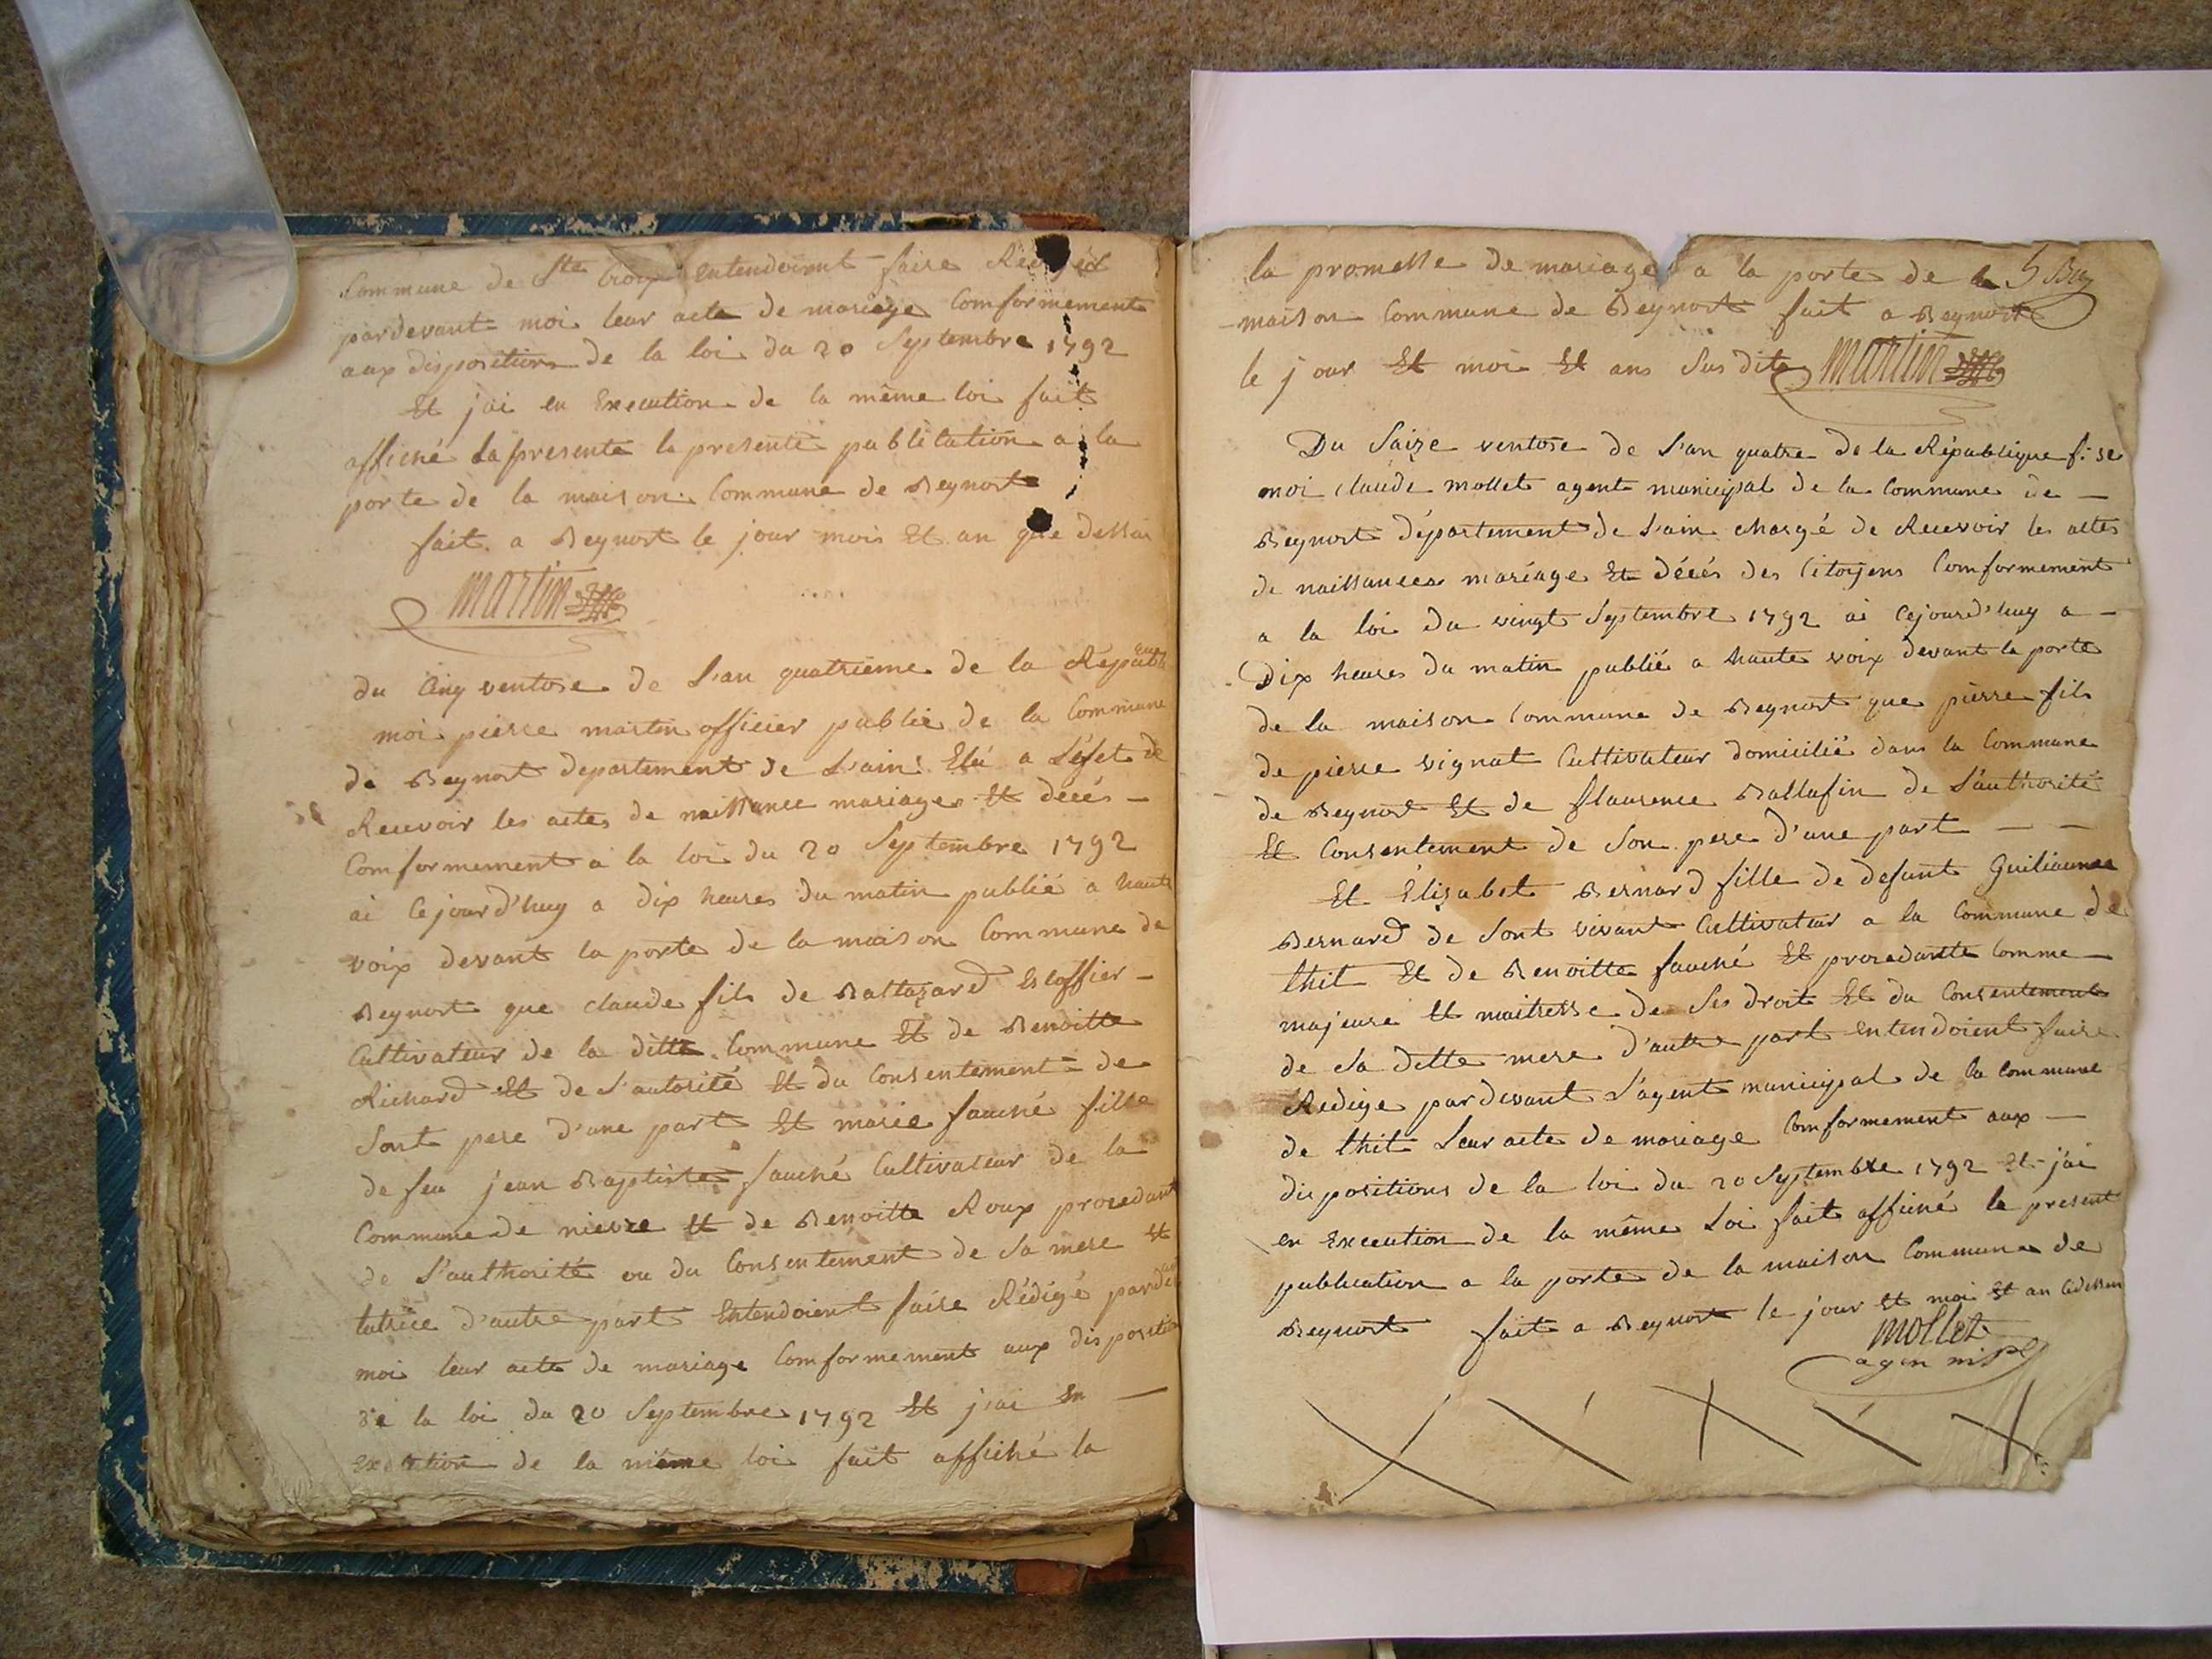 Commune de Ste Croix Entendoient faire Rédigé
pardevant moi leur acte de mariage Comformement
aux dispositions de la loi du 20 Septembre 1792
Et j'ai en Execution de la même loi fait
affiché la presente la presente publication a la
porte de la maison Commune de Beynost
fait a Beynost le jour mois Et an que dessus
martin
du Cinq ventose de L'an quatrieme de la Republi
moi pierre martin officier public de la Commune
de Beynost departement de L'ain Elu a L'éfet de
Recevoir les actes de naissance mariages Et décés —
Comformement a la loi du 20 Septembre 1792
ai Cejourd'huy a dix heures du matin publié a haute
voix devant la porte de la maison Commune de
Beynost que claude fils de Baltazard Escoffier —
Cultivateur de la ditte Commune Et de Benoitte
Richard Et de L'autorité Et du Consentement de
Sont pere d'une part Et marie fauché fille
de feu jean Baptiste fauché Cultivateur de la
Commune de nievre Et de Benoitte Roux procedant
de L'authorité ou du Consentement de Sa mere Et
tutrice d'autre part Entendoient faire Rédigé pardev
moi leur acte de mariage Comformement aux dispositio
de la loi du 20 Septembre 1792 Et j'ai En —
Execution de la même loi fait affiché la
la promesse de mariage a la porte de la
maison Commune de Beynost fait a Beynost
le jour Et moi Et ans Susdits martin
Du Saize ventose de L'an quatre de la Republique f. se
moi claude mollet agent municipal de la Commune de —
Beynost département de L'ain chargé de Recevoir les actes
de naissances mariage Et décés des Citoyens Comformement
a la loi du vingt Septembre 1792 ai Cejourd'huy a —
Dix heures du matin publié a haute voix devant la porte
de la maison Commune de Beynost que pierre fils
de pierre vignat Cultivateur domicilié dans la Commune
de Beynost Et de flaurence Ballafin de L'authorité
Et Consentement de Son pere d'une part — —
Et Elizabet Bernard fille de defunt Guiliaume
Bernard de Sont vivant Cultivateur a la Commune de
thil Et de Benoitte fauché Et procedantte Comme —
majeure Et maitresse de Ses droit Et du Consentement
de Sa ditte mere d'autre part Entendoient faire
Redige pardevant L'agent municipal de la Commune
de thil Leur acte de mariage Comformement aux —
dispositions de la loi du 20 Septembre 1792 Et j'ai
en Execution de la même Loi fait affiché le present
publication a la porte de la maison Commune de
Beynost fait a Beynost le jour Et moi Et an Cidessus
mollet
agen mipl